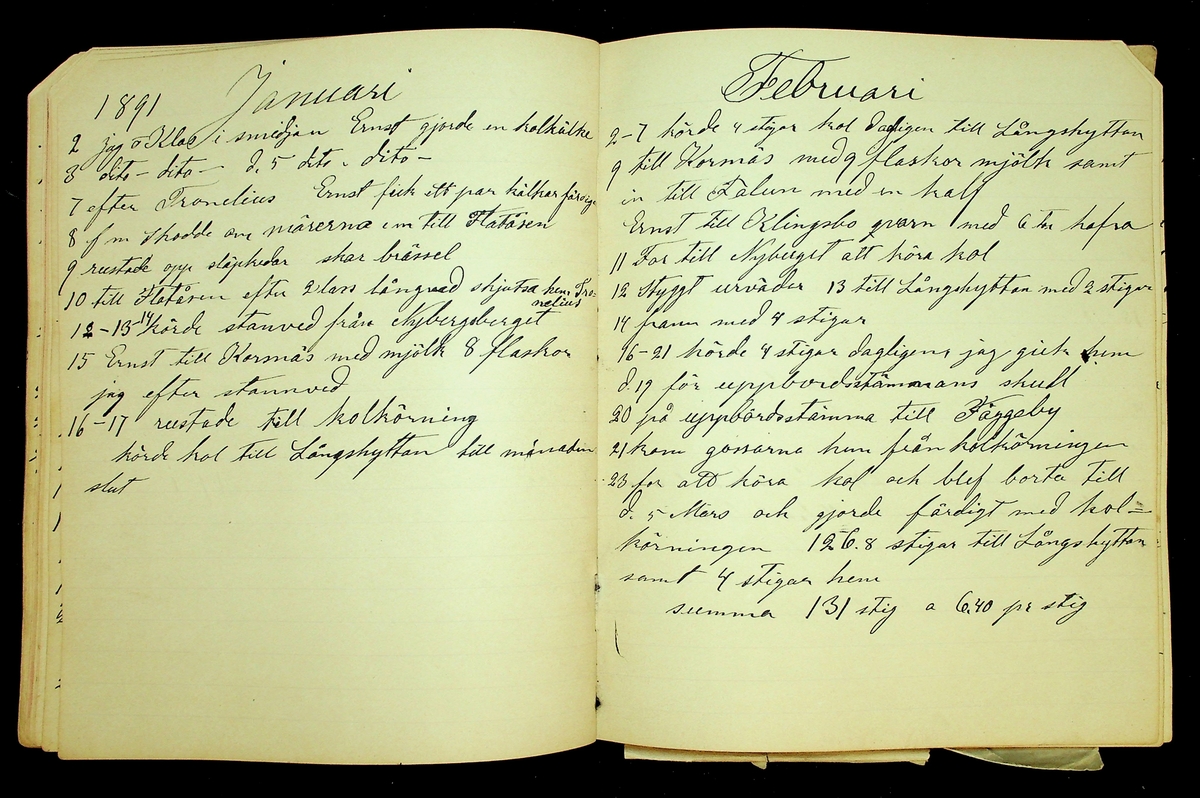 1891 Januari
2 jag o Klas i smidjan Ernst gjorde en kolkälke
3 dito - dito - d. 5 dito - dito -
7 efter Tronelius Ernst fick ett par kälkar färdiga
8 f m skodde om märerna e m till Flatåsen
9 rustade opp släpkedar skar brässel
10 till Flatåsen efter 2 lass långved skjutsa hem Tro-
nelius
12-13-14 körde stanved från Nybergsberget
15 Ernst till Kormäs med mjölk 8 flaskor
jag efter stannved
16-17 rustade till kolkörning
körde kol till Långshyttan till månaden
slut
Februari
2-7 körde 4 stigar kol dagligen till Långshyttan
9 till Kormäs med 9 flaskor mjölk samt
in till Falun med en kalf
Ernst till Klingsbo qvarn med 6 tn hafra
11 For till Nyberget att köra kol
12 Styggt urväder 13 till Långshyttan med 2 stigar
14 fram med 4 stigar
16-21 körde 4 stigar dagligen, jag gick hem
d. 19 för uppbordsstämmans skull
20 på uppbördsstämma till Fäggeby
21 kom gossarna hem från kolkörningen
23 for att köra kol och blef borta till
d. 5 Mars och gjorde färdigt med kol=
körningen 126.8 stigar till Långshyttan
samt 4 stigar hem
summa 131 stig a 6.40 pr stig